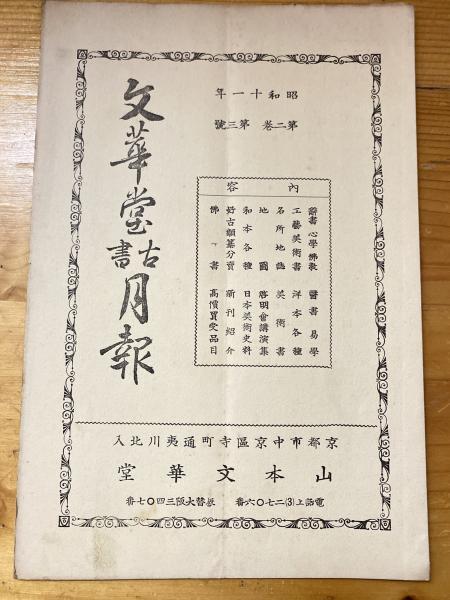 昭和十一年
第二卷 第三號
內容
辭書 心學 佛教 醫書 易學
工藝美術書 洋本各種
名所地誌 美術書
地圖 啓明會講演集
和本各種 日本美術史料
好古類纂分賣 新刊紹介
佛書 高價買受品目
文華堂古書月報
京都市中京區寺町通夷川北入
山本文華堂
電話上(3)二七〇六番 振替大阪三四〇七番